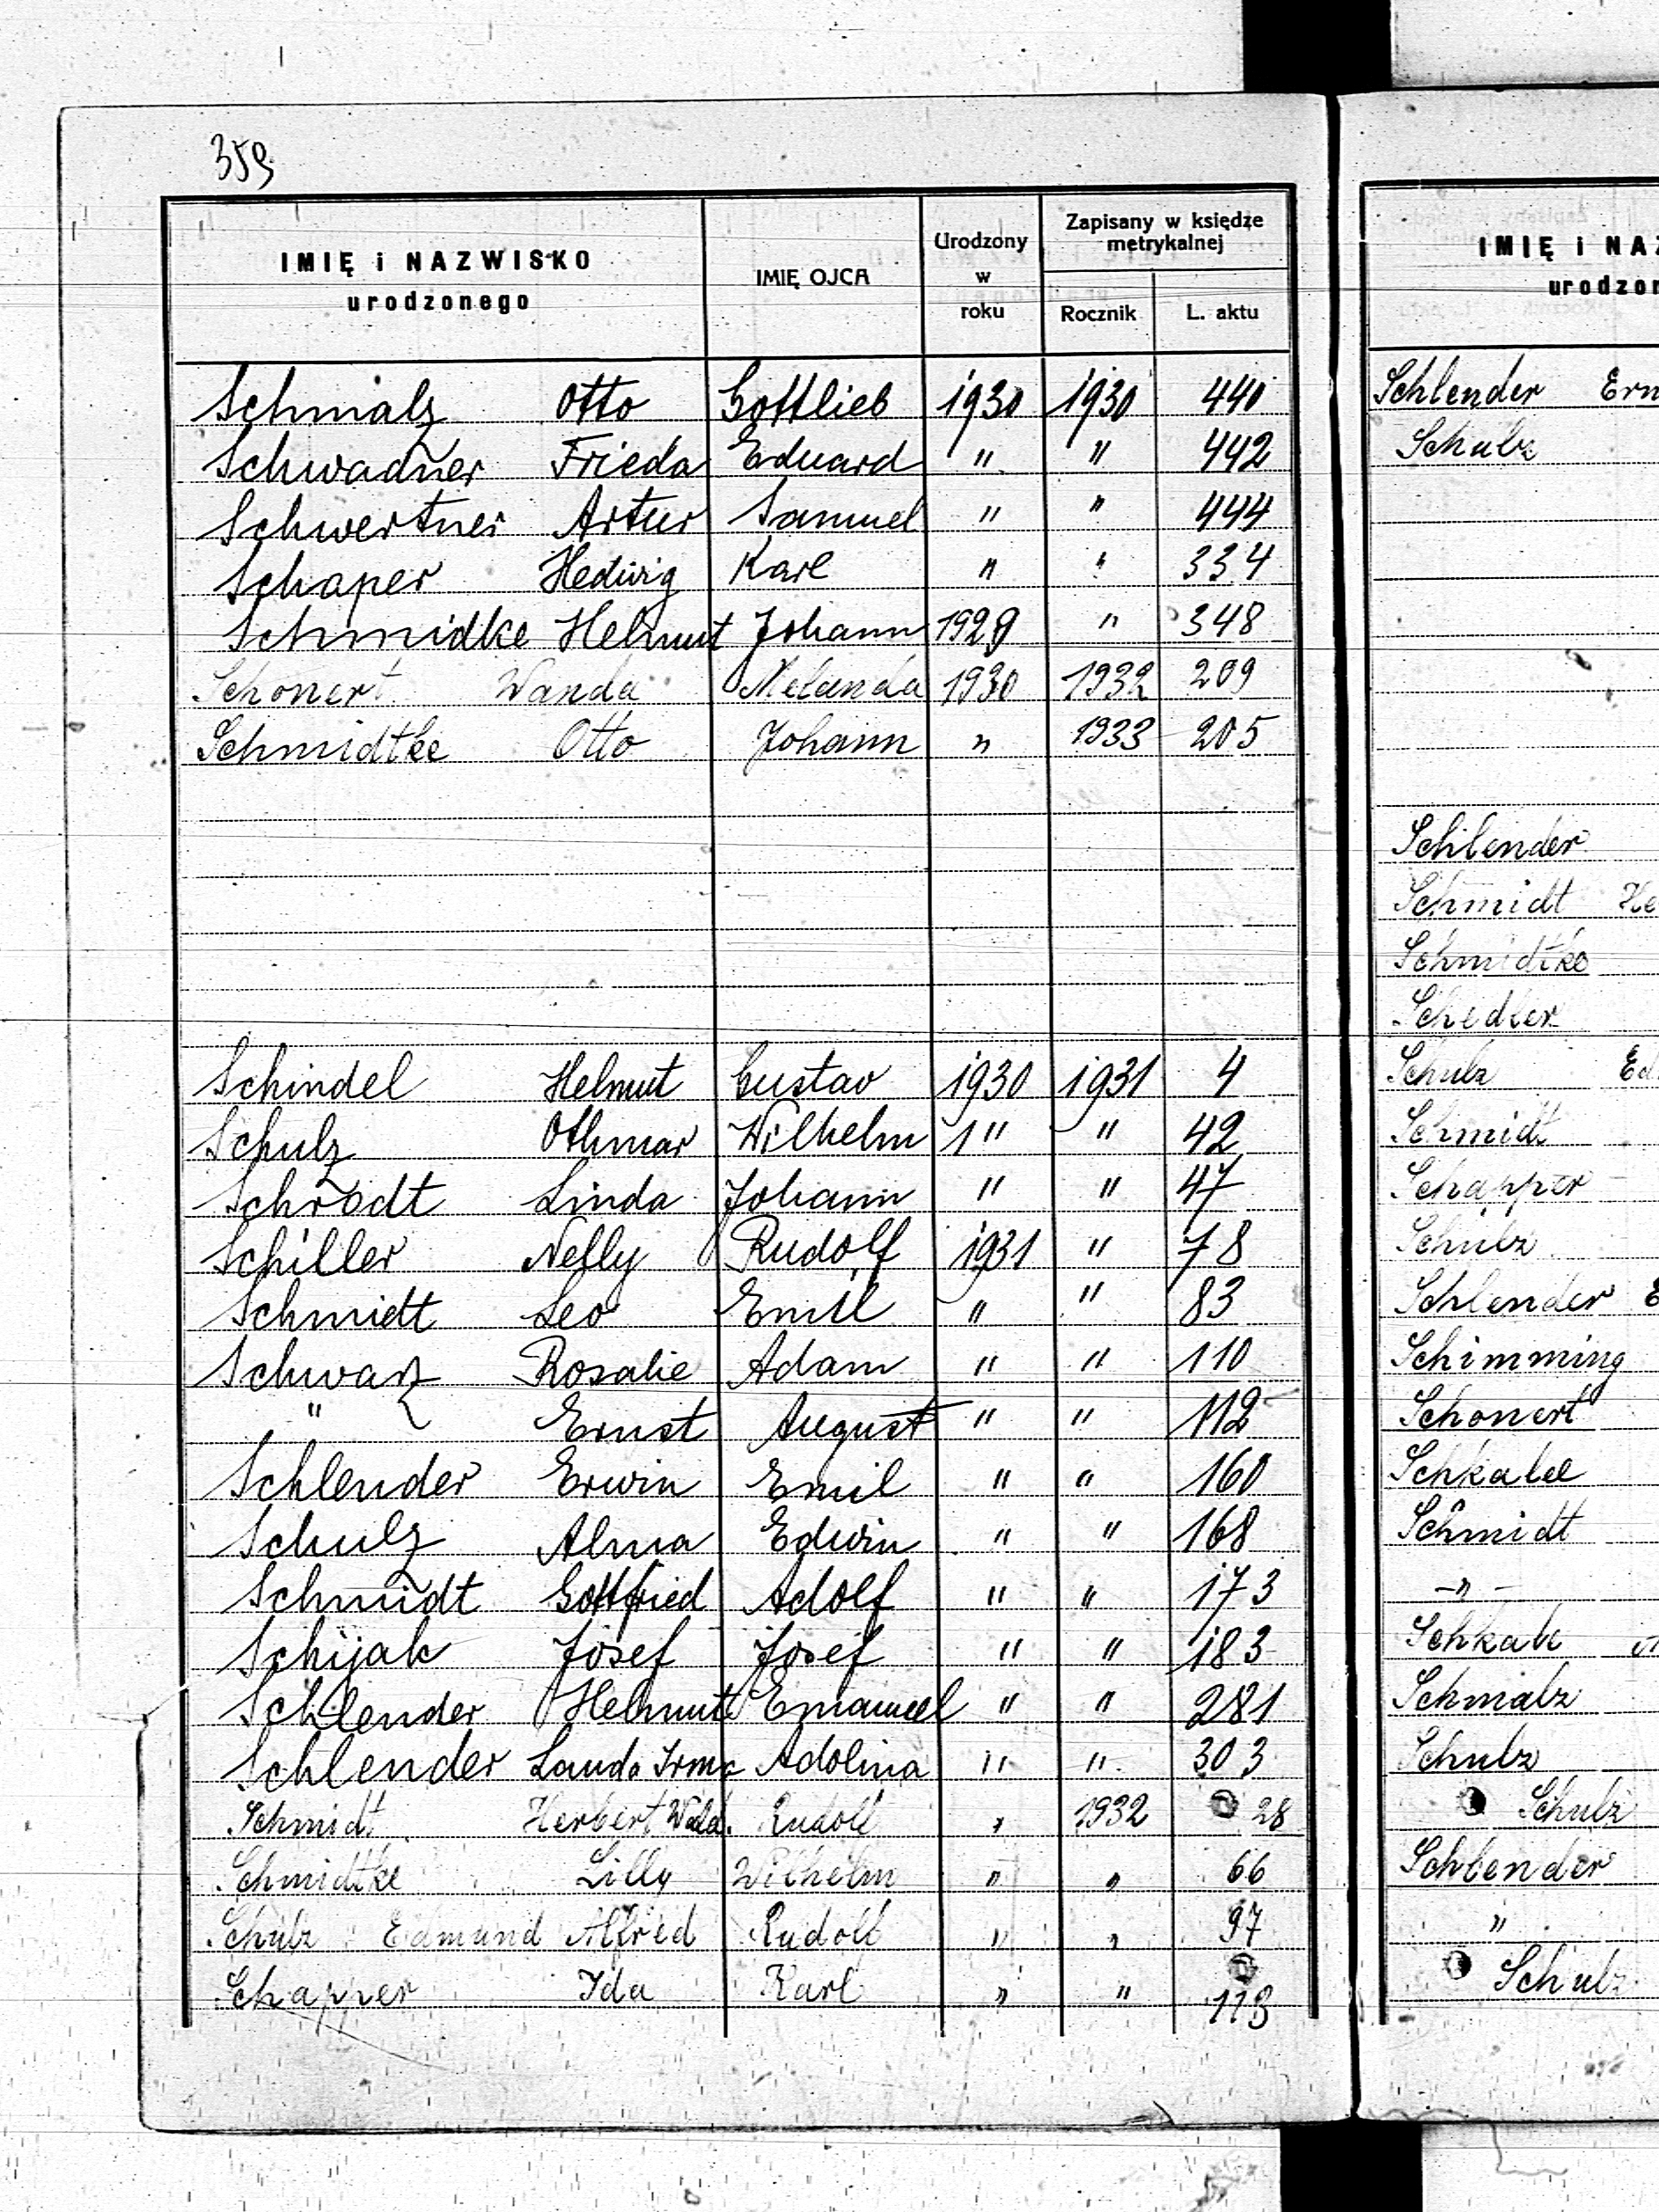 359
IMIĘ i NAZWISKO urodzonego IMIĘ OJCA Urodzony w roku Zapisany w księdze metrykalnej Rocznik L. aktu
Schmalz Otto Gottlieb 1930 1930 440
Schwadner Frieda Eduard " " 442
Schwertner Artur Samuel " " 444
Schaper Hedwig Karl " " 334
Schmidke Helmut Johann 1929 " 348
Schonert Wanda 1930 1932 209
Schmidtke Otto Johann " 1933 205
Schindel Helmut Gustav 1930 1931 4
Schulz Othmar Wilhelm 1" " 42
Schrodt Linda Johann " " 47
Schiller Nelly Rudolf 1931 " 78
Schmidt Leo Emil " " 83
Schwarz Rosalie Adam " " 110
" Ernst August " " 112
Schlender Erwin Emil " " 160
Schulz Alma Edwin " " 168
Schmidt Gottfried Adolf " " 173
Schijak Josef Josef " " 183
Schlender Helmut Emanuel " " 281
Schlender Irma Adolina " " 303
Schmidt Herbert Wald. Rudolf " 1932 28
Schmidtke Lilly Wilhelm " " 66
Schulz Edmund Alfred Rudolf " " 97
Schapper Ida Karl " " 113
IMIĘ i NAZ
urodzon
Schlender Ern
Schulz
Schlender
Schmidt He
Schmidtke
Schedler
Schulz Ed
Schmidt
Schapper
Schulz
Schlender E
Schimming
Schonert
Schkalee
Schmidt
-"-
Schkale
Schmalz
Schulz
Schulz
Schlender
"
Schulz